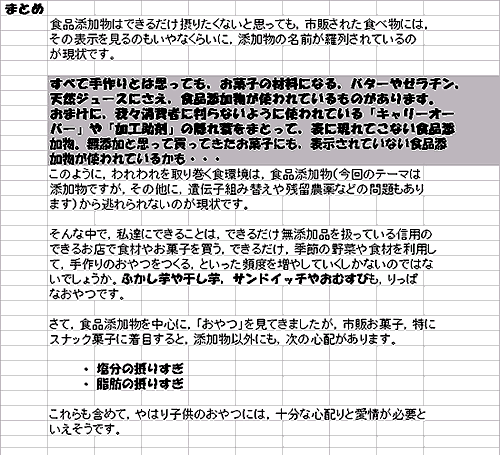 まとめ
食品添加物はできるだけ摂りたくないと思っても，市販された食べ物には，
その表示を見るのもいやなくらいに，添加物の名前が羅列されているの
が現状です。
すべて手作りとは思っても，お菓子の材料になる，バターやゼラチン，
天然ジュースにさえ，食品添加物が使われているものがあります。
おまけに，我々消費者に判らないように使われている「キャリーオー
バー」や「加工助剤」の隠れ蓑をまとって，表に現れてこない食品添
加物。無添加と思って買ってきたお菓子にも，表示されていない食品添
加物が使われているかも・・・
このように，われわれを取り巻く食環境は，食品添加物（今回のテーマは
添加物ですが，その他に，遺伝子組み替えや残留農薬などの問題もあり
ます）から逃れられないのが現状です。
そんな中で，私達にできることは，できるだけ無添加品を扱っている信用の
できるお店で食材やお菓子を買う，できるだけ，季節の野菜や食材を利用し
て，手作りのおやつをつくる，といった頻度を増やしていくしかないのではな
いでしょうか。ふかし芋や干し芋，サンドイッチやおむすびも，りっぱ
なおやつです。
さて，食品添加物を中心に，「おやつ」を見てきましたが，市販お菓子，特に
スナック菓子に着目すると，添加物以外にも，次の心配があります。
・ 塩分の摂りすぎ
・ 脂肪の摂りすぎ
これらも含めて，やはり子供のおやつには，十分な心配りと愛情が必要と
いえそうです。